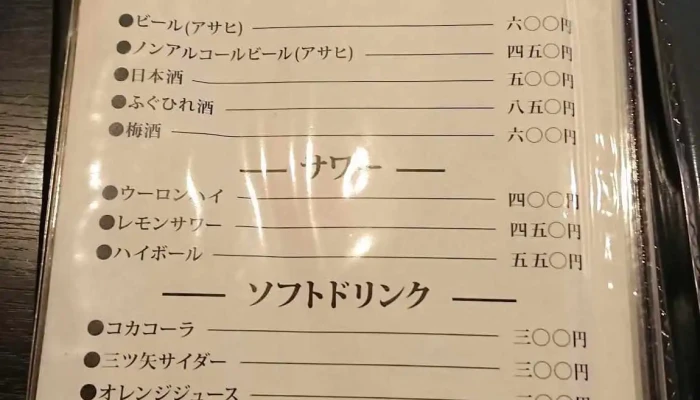 ●ビール(アサヒ) 六〇〇円
●ノンアルコールビール(アサヒ) 四五〇円
●日本酒 五〇〇円
●ふぐひれ酒 八五〇円
●梅酒 六〇〇円
サワー
●ウーロンハイ 四〇〇円
●レモンサワー 四五〇円
●ハイボール 五五〇円
ソフトドリンク
●コカコーラ 三〇〇円
●三ツ矢サイダー 三〇〇円
●オレンジジュース 〇〇円